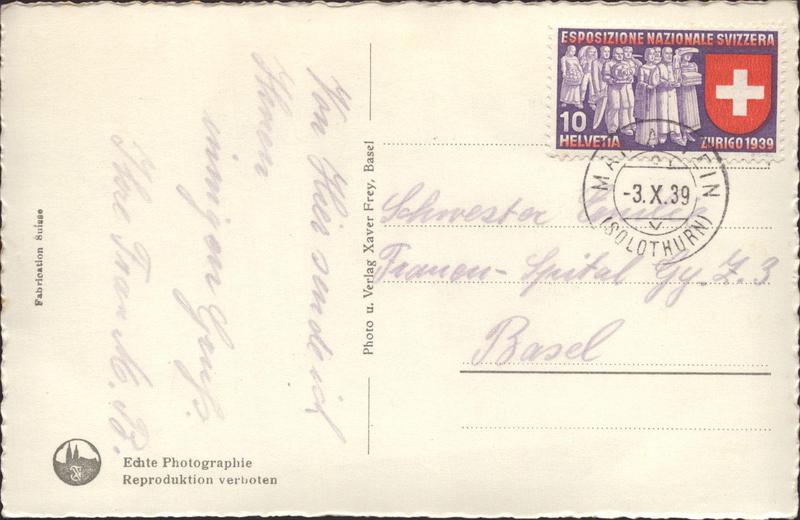 Von Hier sende ich
Ihnen
innigen Gruß.
Ihre Frau M. B.
Fabrication Suisse
Echte Photographie
Reproduktion verboten
Photo u. Verlag Xaver Frey, Basel
ESPOSIZIONE NAZIONALE SVIZZERA
10
HELVETIA
ZURIGO 1939
-3.X.39
(SOLOTHURN)
Schwester
Frauen-Spital Gy. Z. 3
Basel